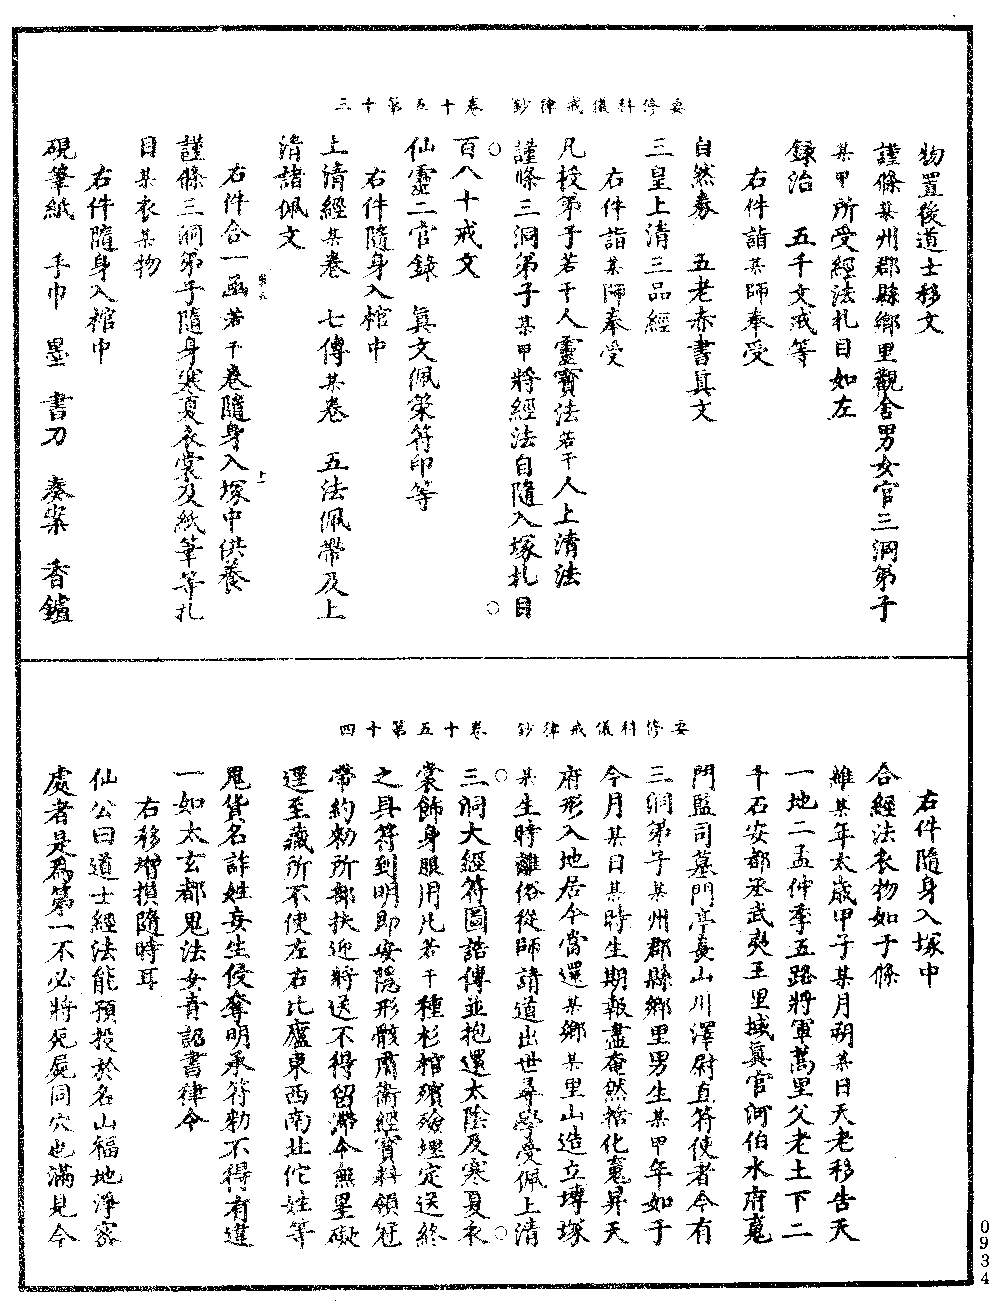 要修科儀戒律鈔　卷十五第十三
物置後道士移文
謹條某州郡縣鄉里觀舍男女官三洞弟子
某甲所受經法札目如左
錄治　五千文戒等
右件詣某師奉受
自然券　五老赤書真文
三皇上清三品經
右件詣某師奉受
凡授弟子若干人靈寶法若干人上清法
謹條三洞弟子某甲將經法自隨入塚札目
百八十戒文
仙靈二官錄　真文佩策符印等
右件隨身入棺中
上清經某卷　七傳某卷　五法佩帶及上
清諸佩文
右件合一函若干卷隨身入塚中供養
謹條三洞弟子隨身寒夏衣裳及紙筆等札
目某衣某物
右件隨身入棺中
硯筆紙　手巾　墨　書刀　奏案　香鑪
要修科儀戒律鈔　卷十五第十四
右件隨身入塚中
合經法衣物如于條
維某年太歲甲子某月朔某日天老移告天
一地二孟仲季五路將軍萬里父老土下二
千石安都丞武夷王里域真官河伯水府䰟
門監司墓門亭長山川澤尉直符使者今有
三洞弟子某州郡縣鄉里男生某甲年如于
今月某日某時生期報盡奄然從化䰟昇天
府形入地居今當還某鄉某里山造立塼塚
某生時離俗從師請道出世尋學受佩上清
三洞大經符圖誥傳並抱還太陰及寒夏衣
裳飾身服用凡若干種杉棺殯殮埋定送終
之具符到明即安隱形骸肅衛經寶料領冠
帶約勑所部扶迎將送不得留滯令無罣礙
還至藏所不使左右比廬東西南北佗姓等
鬼貨名詐姓妄生侵奪明承符勑不得有違
一如太玄都鬼法女青詔書律令
右移增損隨時耳
仙公曰道士經法能預投於名山福地淨密
處者是爲第一不必將死屍同穴也滿見今
0934